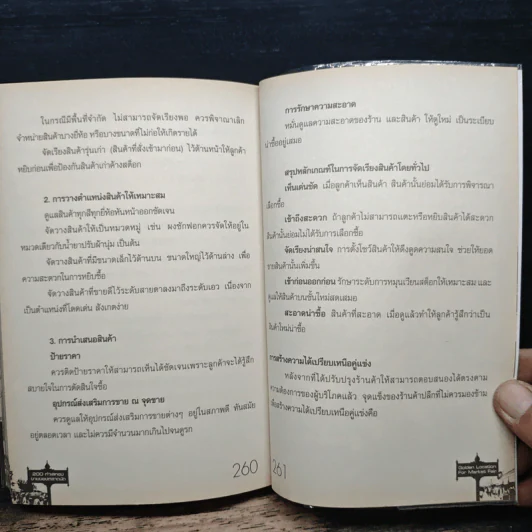 ในกรณีมีพื้นที่จำกัด ไม่สามารถจัดเรียงพอ ควรพิจารณาเลิก
จำหน่ายสินค้าบางยี่ห้อ หรือบางขนาดที่ไม่ก่อให้เกิดรายได้
จัดเรียงสินค้ารุ่นเก่า (สินค้าที่สั่งเข้ามาก่อน) ไว้ด้านหน้าให้ลูกค้า
หยิบก่อนเพื่อป้องกันสินค้าเก่าค้างสต็อก
2. การวางตำแหน่งสินค้าให้เหมาะสม
ดูแลสินค้าทุกสียี่ห้อหันหน้าออกชัดเจน
จัดวางสินค้าให้เป็นหมวดหมู่ เช่น ผงซักฟอกควรจัดให้อยู่ใน
หมวดเดียวกับน้ำยาปรับผ้านุ่ม เป็นต้น
จัดวางสินค้าที่มีขนาดเล็กไว้ด้านบน ขนาดใหญ่ไว้ด้านล่าง เพื่อ
ความสะดวกในการหยิบซื้อ
จัดวางสินค้าที่ขายดีไว้ระดับสายตาลงมาถึงระดับเอว เนื่องจาก
เป็นตำแหน่งที่โดดเด่น สังเกตง่าย
3. การนำเสนอสินค้า
ป้ายราคา
ควรติดป้ายราคาให้สามารถเห็นได้ชัดเจนเพราะลูกค้าจะได้รู้สึก
สบายใจในการตัดสินใจซื้อ
อุปกรณ์ส่งเสริมการขาย ณ จุดขาย
ควรดูแลให้อุปกรณ์ส่งเสริมการขายต่างๆ อยู่ในสภาพดี ทันสมัย
อยู่ตลอดเวลา และไม่ควรมีจำนวนมากเกินไปจนดูรก
260
การรักษาความสะอาด
หมั่นดูแลความสะอาดของร้าน และสินค้า ให้ดูใหม่ เป็นระเบียบ
น่าซื้ออยู่เสมอ
สรุปหลักเกณฑ์ในการจัดเรียงสินค้าโดยทั่วไป
เห็นเด่นชัด เมื่อลูกค้าเห็นสินค้า สินค้านั้นย่อมได้รับการพิจารณา
เลือกซื้อ
เข้าถึงสะดวก ถ้าลูกค้าไม่สามารถแตะหรือหยิบสินค้าได้สะดวก
สินค้านั้นย่อมไม่ได้รับการเลือกซื้อ
จัดเรียงน่าสนใจ การตั้งโชว์สินค้าให้ดึงดูดความสนใจ ช่วยให้ยอด
ขายสินค้านั้นเพิ่มขึ้น
เข้าก่อนออกก่อน รักษาระดับการหมุนเวียนสต็อกให้เหมาะสม และ
ดูแลให้สินค้าบนชั้นใหม่สดเสมอ
สะอาดน่าซื้อ สินค้าที่สะอาด เมื่อดูแล้วทำให้ลูกค้ารู้สึกว่าเป็น
สินค้าใหม่น่าซื้อ
การสร้างความได้เปรียบเหนือคู่แข่ง
หลังจากที่ได้ปรับปรุงร้านค้าให้สามารถตอบสนองได้ตรงตาม
ความต้องการของผู้บริโภคแล้ว จุดแข็งของร้านค้าปลีกที่ไม่ควรมองข้าม
เพื่อสร้างความได้เปรียบเหนือคู่แข่งคือ
261
Golden Location
For Market Fair